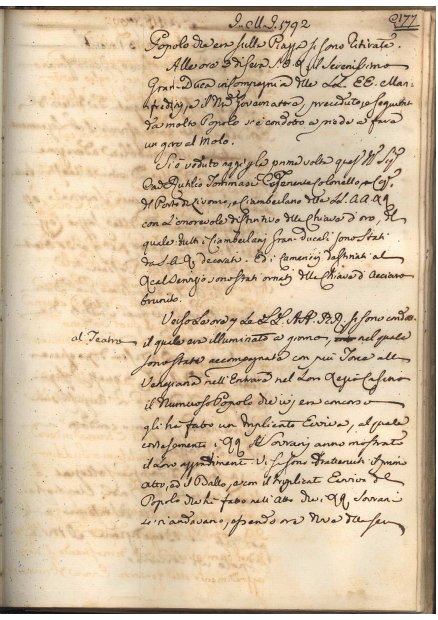 J. M. J. 1792
277
Popolo che era sulla Piazza si sono ritirate.
Alle ore di sera S. A. R. il Serenissimo
Gran-Duca in Compagnia delle LL. EE. Man-
fredini, e il Governatore, preceduto, e seguito
da molto Popolo si è condotto a piede a fare
un giro al Molo.
Si è veduto oggi p la prima volta
Tommasi Tenente Colonello, e Cap.
del Porto di Livorno, e Ciamberlano delle LL. AA. RR.
con l'onorevole distintivo della Chiave d'oro, di
quale tutti i Ciamberlani Gran-Ducali sono stati
da S. A. R. decorati. Ed i Camerieri destinati al
sono stati ornati della Chiave d'Acciaro
brunito.
Verso le ore 7 Le LL. AA. RR. si sono condotte
al Teatro
il quale era illuminato a giorno, nel quale
sono state accompagnate con più Torce alla
Veneziana nell'Entrare nel Loro Regio Casino
il Numeroso Popolo che ivi era concorso
gli ha fatto un replicato Evviva, al quale
i RR. Sovrani anno mostrato
il Loro aggradimento. Vi si sono trattenuti il primo
Atto, ed il Ballo, e con il replicato Evviva del
Popolo che ha fatto nell'Atto che i RR. Sovrani
andavano, essendo ore nove della sera